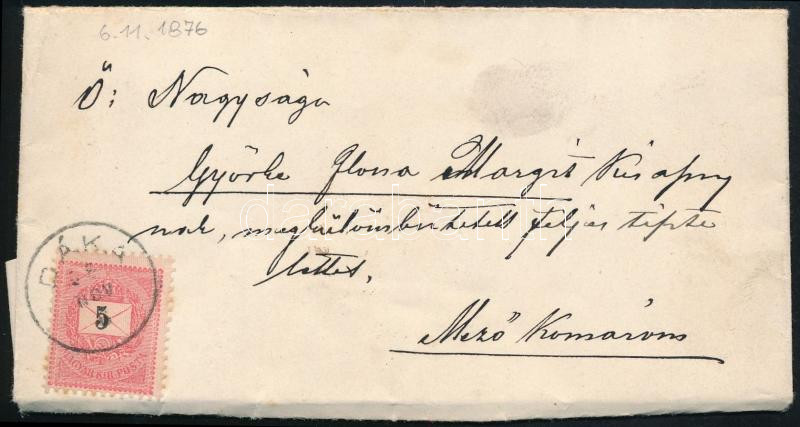 6.11.1876
Ő: Nagysága
Györke Ilona Margit Kisasony
nak, megkülömbőztetett teljes tisztelettel,
Mező Komárom
DÁKA
NOV
5
MAGYAR KIR. POSTA
darabanth